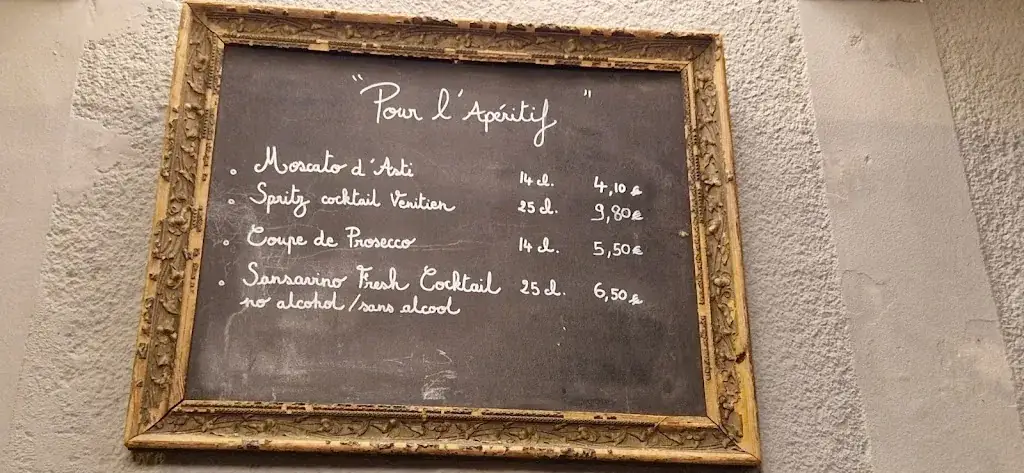 "Pour l'Apéritif"
• Moscato d'Asti 14 cl. 4,10 €
• Spritz cocktail Vénitien 25 cl. 9,80 €
• Coupe de Prosecco 14 cl. 5,50 €
• Sansavino Fresh Cocktail 25 cl. 6,50 €
no alcohol / sans alcool